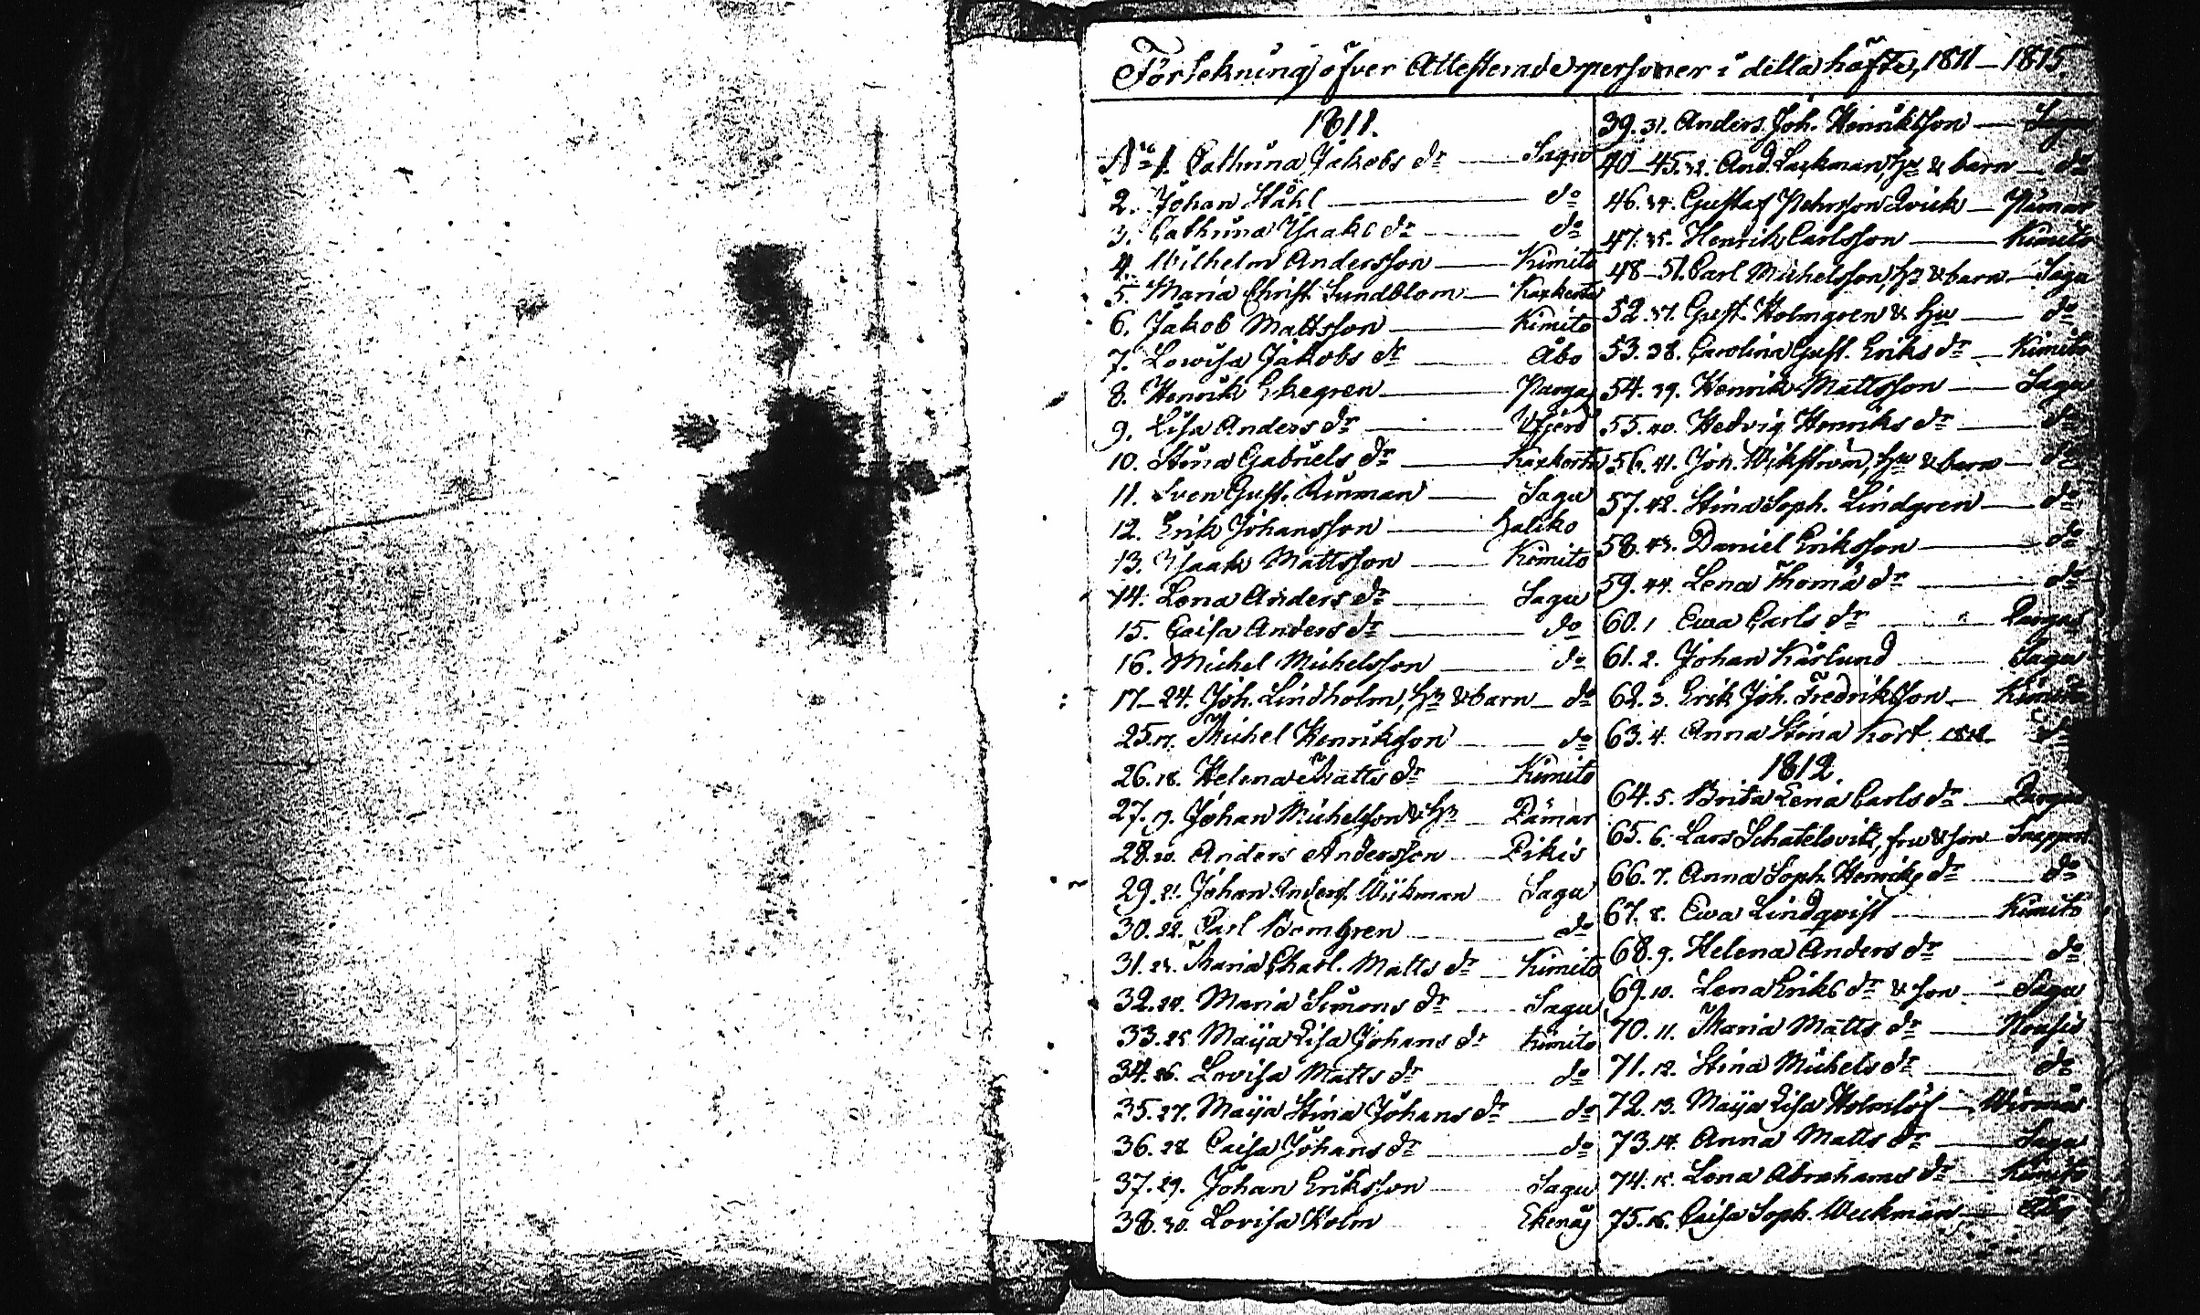 Förtekning öfver Attesterade personer i detta häfte, 1811–1815.
1811.
No 1. Cathrina Jakobs dr — Sagu
2. Johan Ståhl — do
3. Cathrina Isaaks dr — do
4. Wilhelm Andersson — Kimito
5. Maria Christ. Sundblom — Karherta
6. Jakob Mattsson — Kimito
7. Lowisa Jakobs dr — Åbo
8. Henrik Ekegren — Pargas
9. Lisa Anders dr —
10. Stina Gabriels dr —
11. Sven Gust. Rinman — Sagu
12. Erik Johansson — Haliko
13. Isaak Mattsson — Kimito
14. Lena Anders dr — Sagu
15. Caisa Anders dr — do
16. Michel Michelsson — do
17–24. Joh. Lindholm, hu & barn — do
25.17. Michel Henriksson — do
26.18. Helena Matts dr — Kimito
27.19. Johan Michelsson & hu — Pämar
28.20. Anders Andersson — Pikis
29.21. Johan Anderss. Wikman — Sagu
30.22. Carl Blomgren — do
31.23. Maria Charl. Matts dr — Kimito
32.24. Maria Simons dr — Sagu
33.25. Maija Lisa Johans dr — Kimito
34.26. Lovisa Matts dr — do
35.27. Maija Stina Johans dr — do
36.28. Caisa Johans dr — do
37.29. Johan Eriksson — Sagu
38.30. Lovisa Holm — Ekenäs
39.31. Anders Joh. Henriksson — Sagu
40–45.32. And. Laxkman, hu & barn — do
46.34. Gustaf Pehrsson Qvick — Pämar
47.35. Henrik Carlsson — Kimito
48–51. Carl Michelsson, hu & barn — Sagu
52.37. Gust. Holmgren & hu — do
53.38. Carolina Gust. Eriks dr — Kimito
54.39. Henrik Mattsson — Sagu
55.40. Hedvig Henriks dr — do
56.41. Joh. Wikström, hu & barn — do
57.42. Stina Soph. Lindgren — do
58.43. Daniel Eriksson — do
59.44. Lena Thomä dr — do
60.1. Ewa Carls dr — Pargas
61.2. Johan Kärlund — Sagu
62.3. Erik Joh. Fredriksson — Kimito
63.4. Anna Stina Kort — do
1812.
64.5. Brita Lena Carls dr — Pargas
65.6. Lars Schatelovitz, fru & son —
66.7. Anna Soph. Henriks dr — do
67.8. Ewa Lindqvist — Kimito
68.9. Helena Anders dr — do
69.10. Lena Eriks dr & son — Sagu
70.11. Maria Matts dr — Nousis
71.12. Stina Michels dr — do
72.13. Maija Lisa Holmlöf — Wirmo
73.14. Anna Matts dr — Sagu
74.15. Lena Abrahams dr — Kimito
75.16. Caisa Soph. Weckman — Åbo